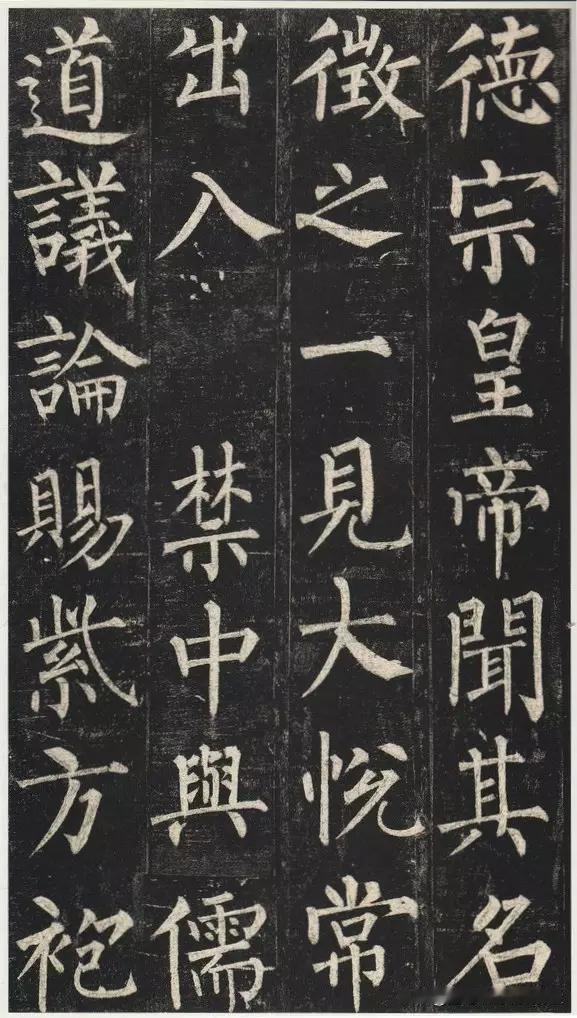 德宗皇帝聞其名
徵之一見大悅常
出入 禁中與儒
道議論賜紫方袍